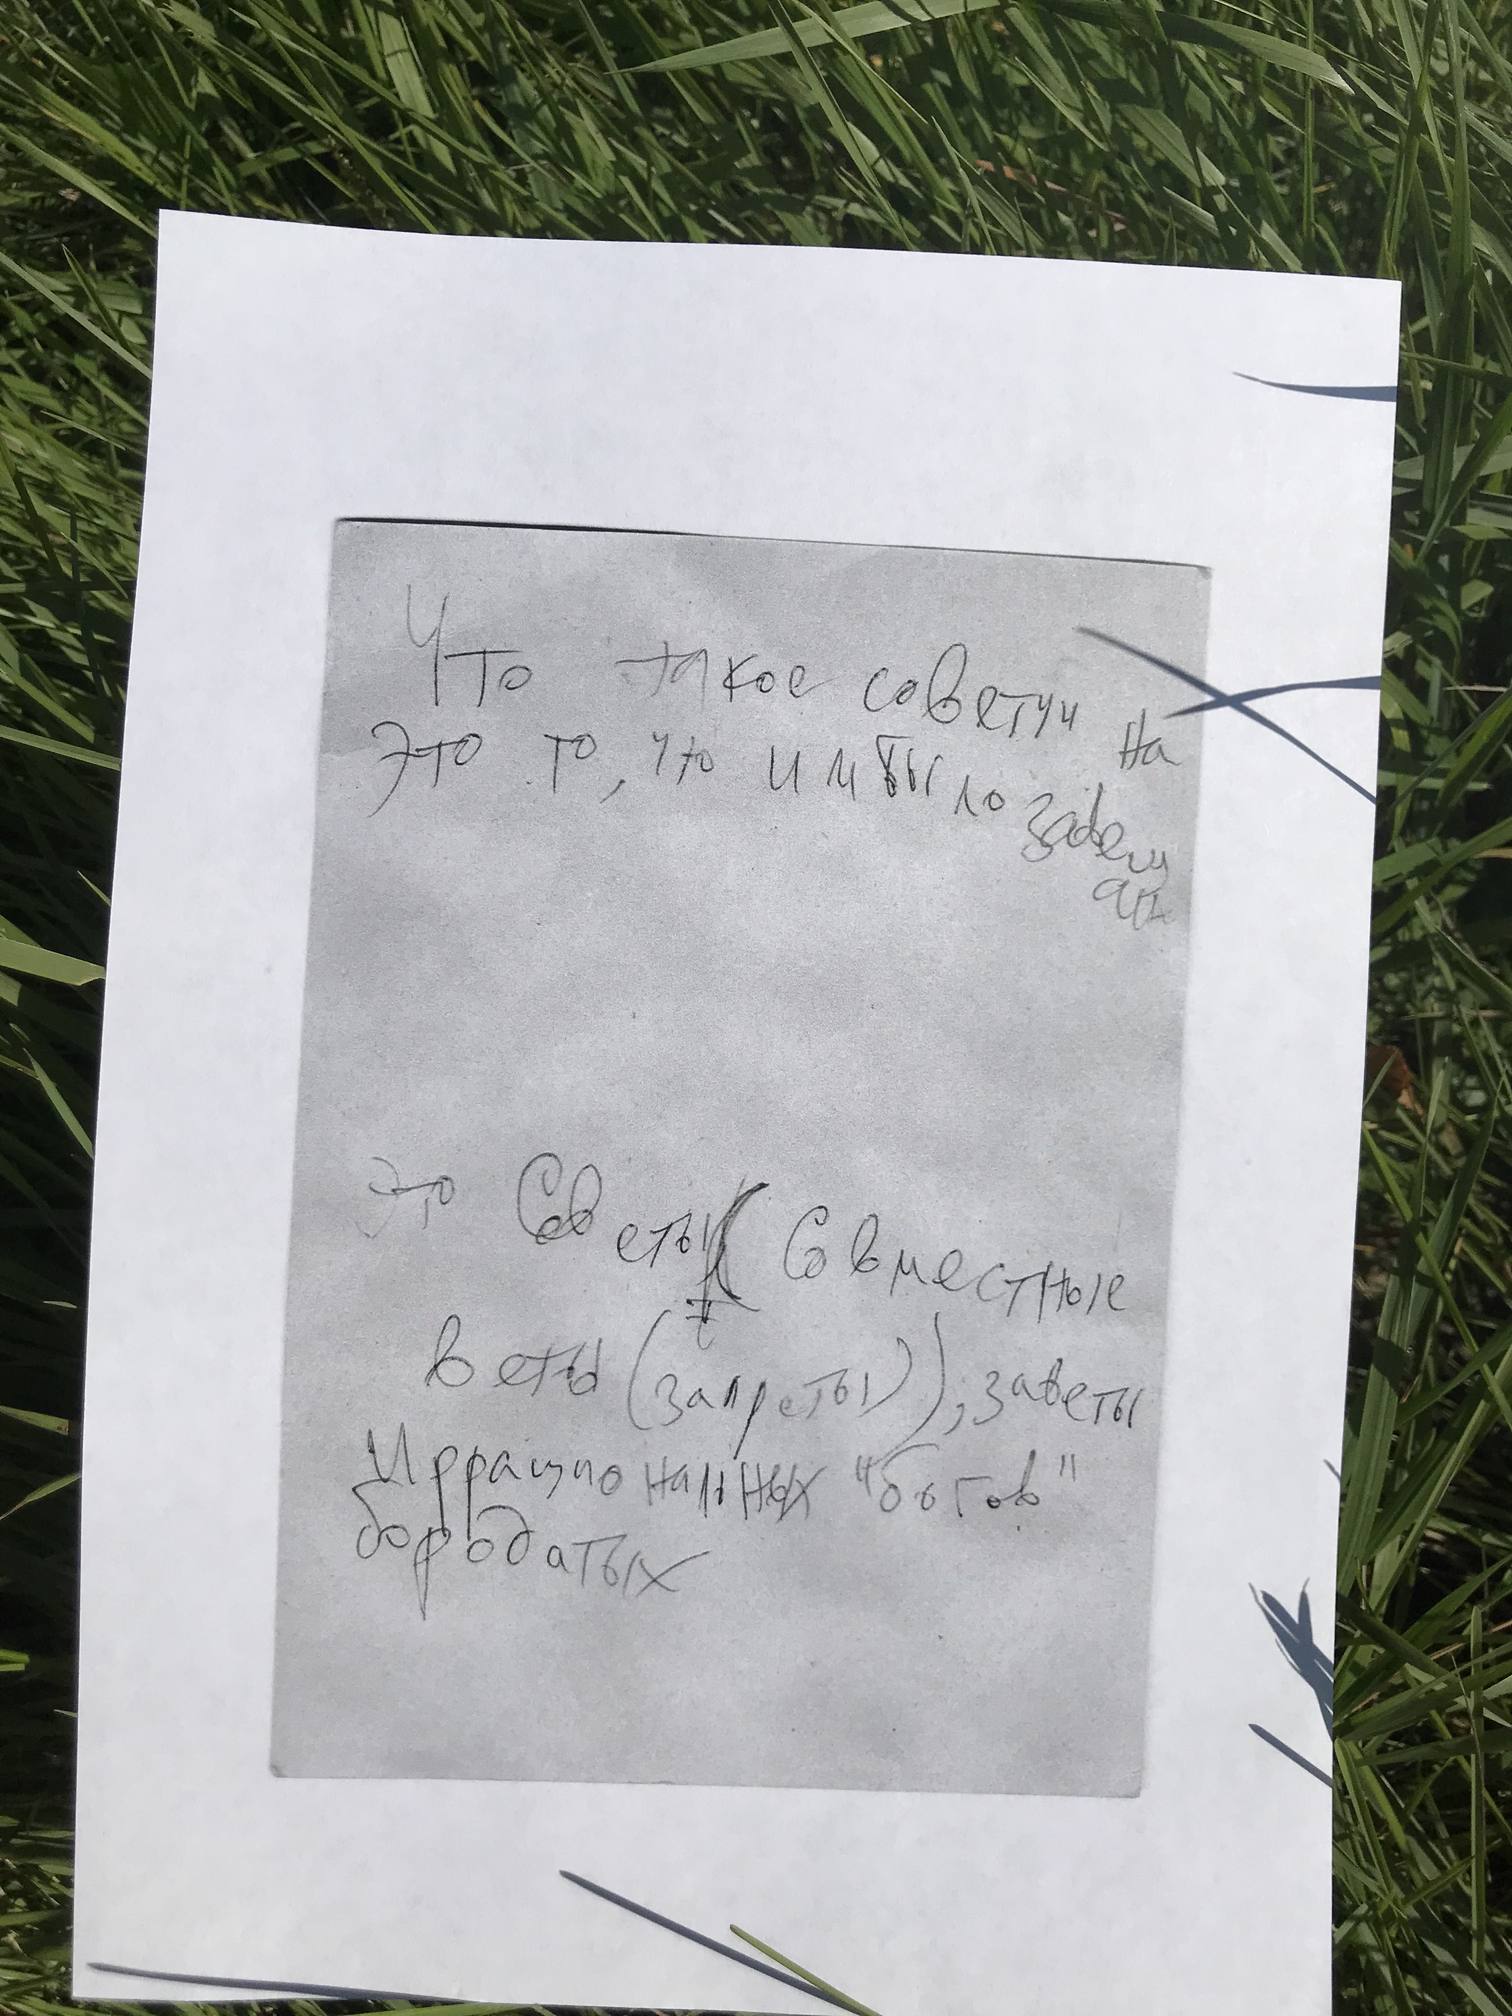 Что такое советуи на
Это то, что им было завещ
ано
Это Советы (Совместные
веты (запреты)), заветы
Иррациональных "богов"
бородатых